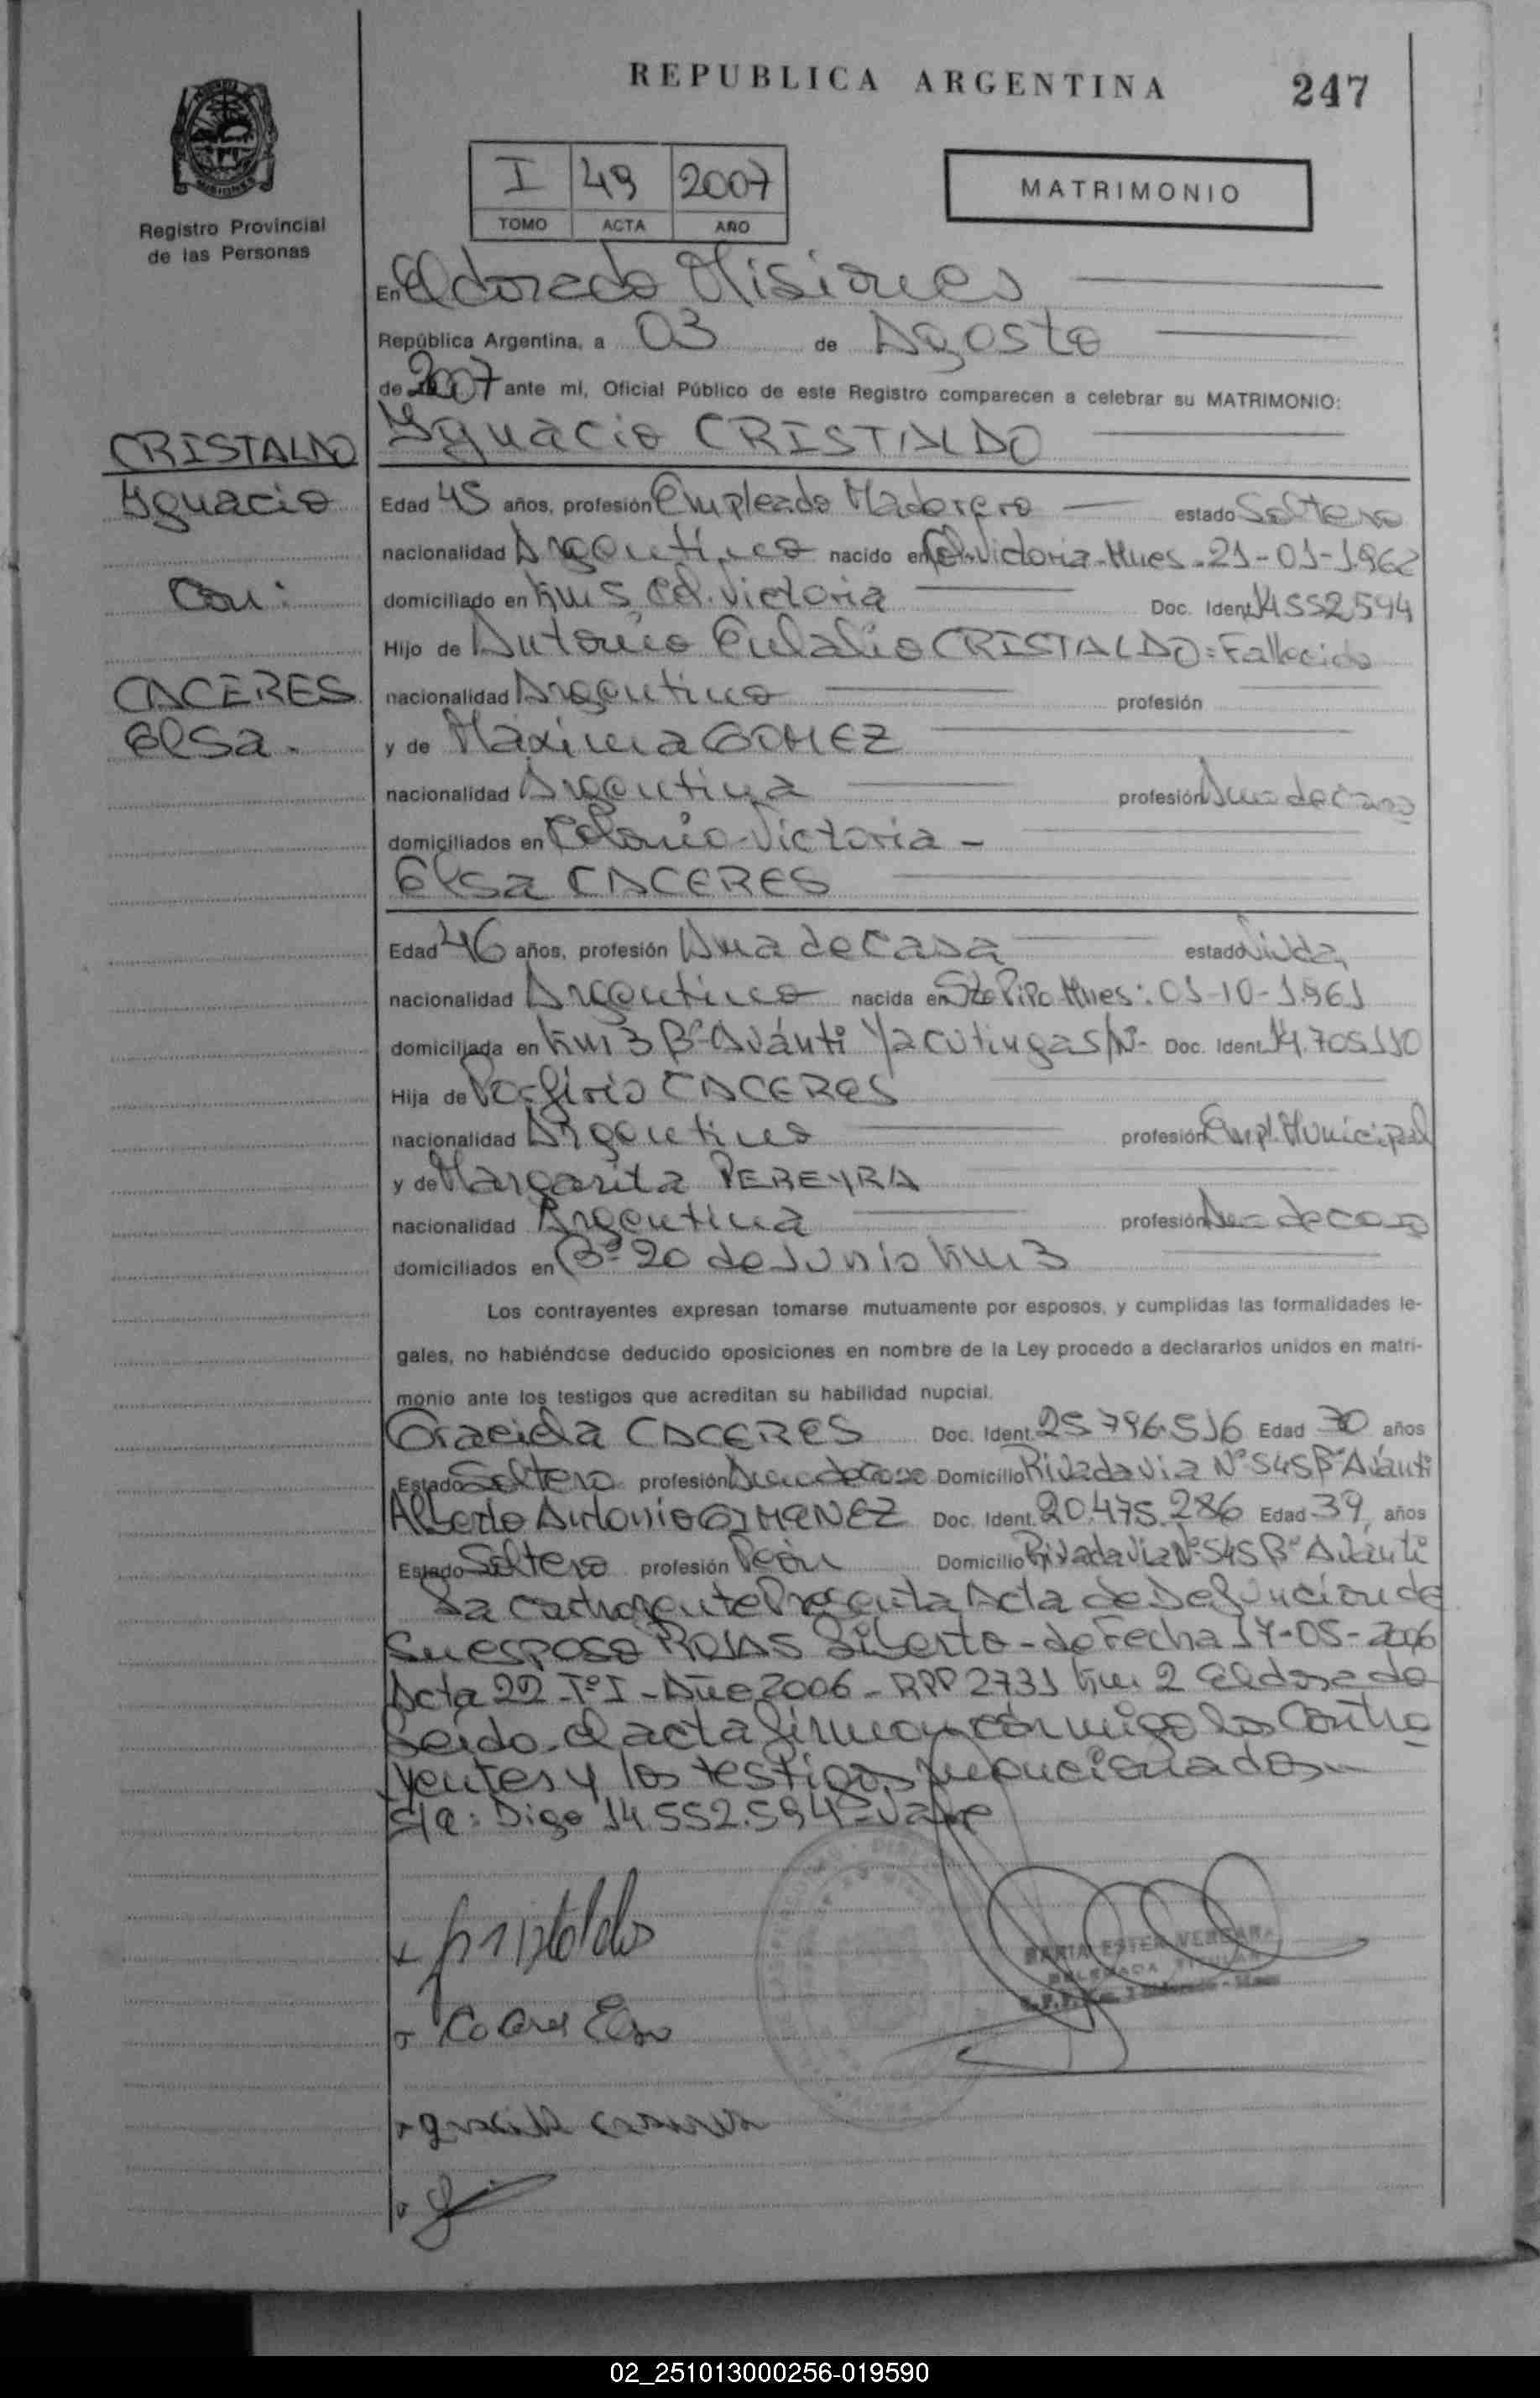 REPUBLICA ARGENTINA
247
Registro Provincial
de las Personas
I 49 2007
TOMO ACTA AÑO
MATRIMONIO
En Eldorado Misiones
República Argentina, a 03 de Agosto
de 2007 ante mí, Oficial Público de este Registro comparecen a celebrar su MATRIMONIO:
CRISTALDO
Ygnacio
Con:
CACERES
Elsa.
Ygnacio CRISTALDO
Edad 45 años, profesión Empleado Maderero estado Soltero
nacionalidad Argentino nacido en Col. Victoria-Mnes-21-01-1.962
domiciliado en Km 5 Col. Victoria Doc. Ident. 14552594
Hijo de Antonio Eulalio CRISTALDO=Fallecido
nacionalidad Argentino profesión
y de Máxima GOMEZ
nacionalidad Argentina profesión Ama de Casa
domiciliados en Colonia-Victoria-
Elsa CACERES
Edad 46 años, profesión Ama de Casa estado Viuda
nacionalidad Argentino nacida en Sto Pipo Mnes: 01-10-1.961
domiciliada en Km 3 Bº-Avánti Yacutinga S/Nº- Doc. Ident. 14.705.110
Hija de Porfirio CACERES
nacionalidad Argentino profesión Empl. Municipal
y de Margarita PEREYRA
nacionalidad Argentina profesión Ama de Casa
domiciliados en Bº-20 de Junio Km 3
Los contrayentes expresan tomarse mutuamente por esposos, y cumplidas las formalidades le-
gales, no habiéndose deducido oposiciones en nombre de la Ley procedo a declararlos unidos en matri-
monio ante los testigos que acreditan su habilidad nupcial.
Graciela CACERES Doc. Ident. 25.796.516 Edad 30 años
Estado Soltera profesión Ama de Casa Domicilio Rivadavia Nº545 Bº Avánti
Alberto Antonio GIMENEZ Doc. Ident. 20.475.286 Edad 39 años
Estado Soltero profesión Peón Domicilio Rivadavia Nº-545 Bº Avánti
La Contrayente Presenta Acta de Defunción de
su esposo ROJAS Silverto-de Fecha 14-05-2006
Acta 22-TºI-Año 2006-RPP 2731 Km 2 Eldorado
Leído el acta firman cónmigo los Contra
yentes y los testigos mencionados
S/R: Digo 14.552.594=Vale
Cristaldo
Caceres Elsa
MARIA ESTER VERGARA
DELEGADA TITULAR
02_251013000256-019590